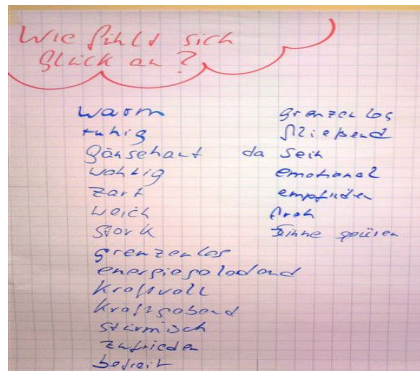 Wie fühlt sich
Glück an?
warm
ruhig
gänsehaut
wohlig
zart
weich
stark
grenzenlos
energiegeladend
kraftvoll
kraftgebend
stürmisch
zufrieden
befreit
grenzenlos
fließend
da sein
emotional
empfinden
froh
Sinne spüren